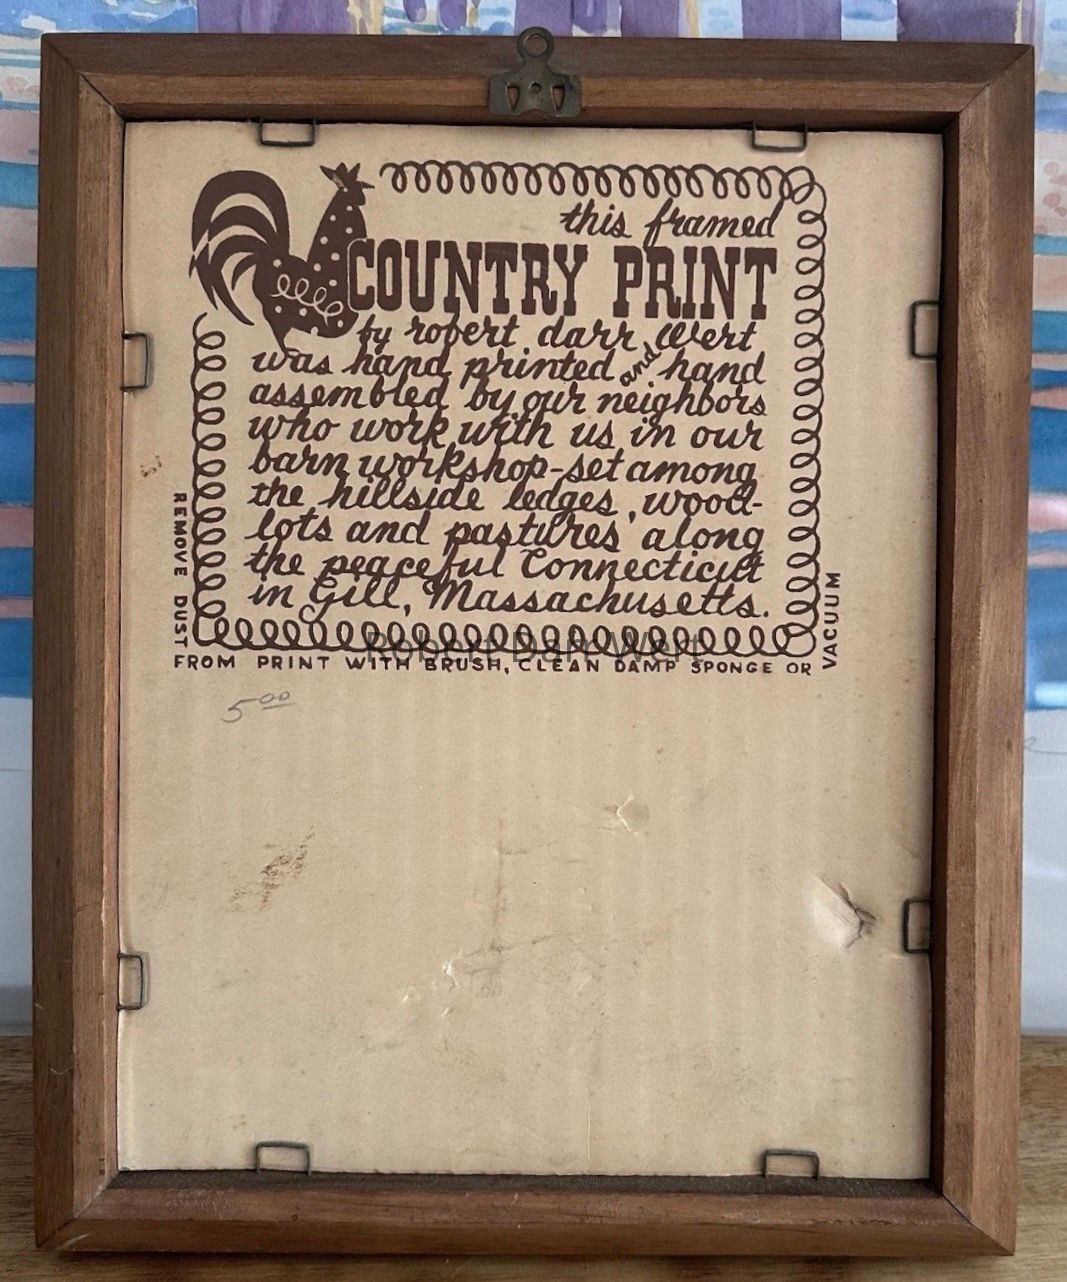 this framed
COUNTRY PRINT
by robert darr Wert
was hand printed and hand
assembled by our neighbors
who work with us in our
barn workshop-set among
the hillside ledges, wood-
lots and pastures along
the peaceful Connecticut
in Gill, Massachusetts.
REMOVE DUST
FROM PRINT WITH BRUSH, CLEAN DAMP SPONGE OR
VACUUM
Robert Darr Wert
5.00